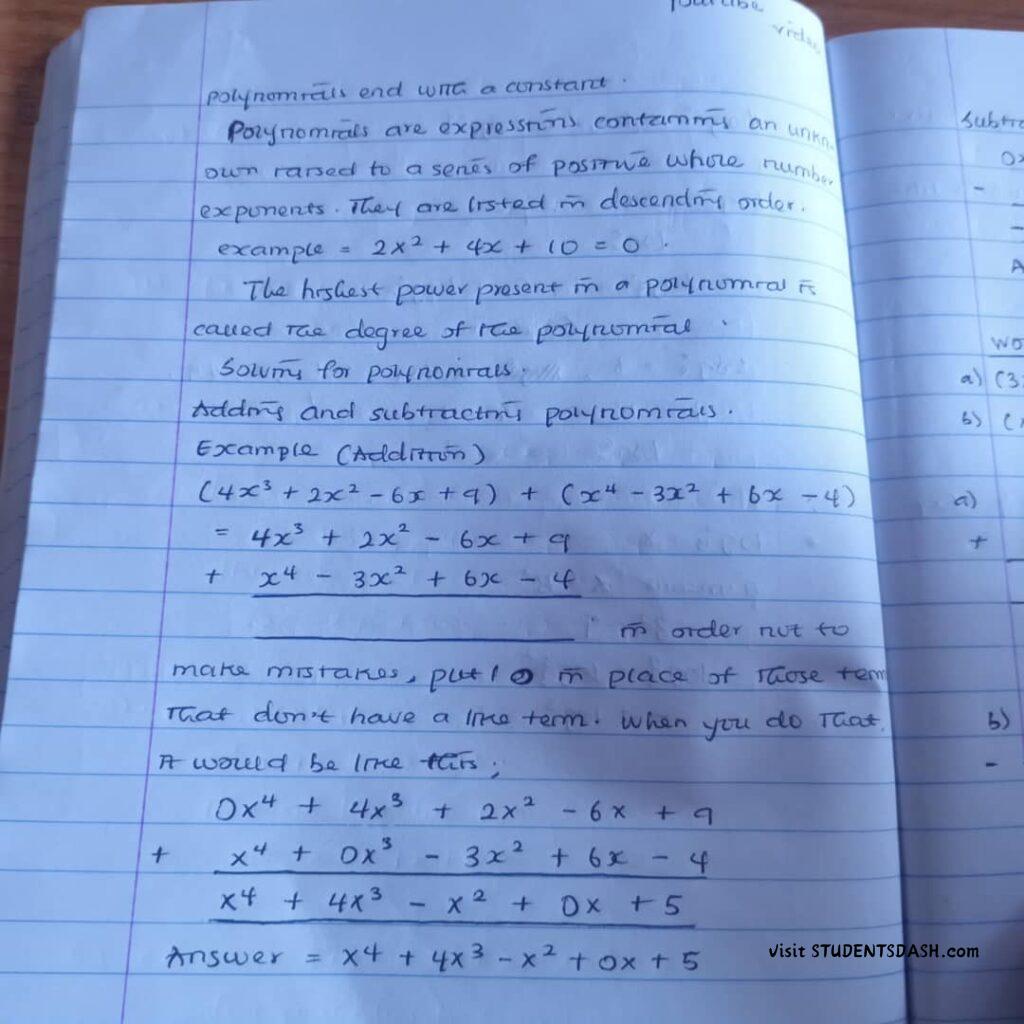 Youtube
video
polynomials end with a constant.
Polynomials are expressions containing an unkn-
own raised to a series of positive whole number
exponents. They are listed in descending order.
example = 2x² + 4x + 10 = 0.
The highest power present in a polynomial is
called the degree of the polynomial.
Solving for polynomials.
Adding and subtracting polynomials.
Example (Addition)
(4x³ + 2x² - 6x + 9) + (x⁴ - 3x² + 6x - 4)
= 4x³ + 2x² - 6x + 9
+ x⁴ - 3x² + 6x - 4
in order not to
make mistakes, put 0 in place of those term
that don't have a like term. When you do that,
it would be like this;
0x⁴ + 4x³ + 2x² - 6x + 9
+ x⁴ + 0x³ - 3x² + 6x - 4
x⁴ + 4x³ - x² + 0x + 5
Answer = x⁴ + 4x³ - x² + 0x + 5
Subtra
0x
-
-
A
wo
a) (3
b) (
a)
+
b)
-
visit STUDENTSDASH.com